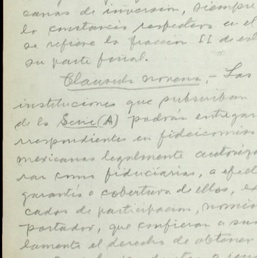 canas de inversion, siempre
la constancia respectiva en el
se refiere la fraccion II de es
su parte final.
Clausula novena.- Las
instituciones que subscriban
de la Serie (A) podrán entregar
respondientes en fideicomiso
mexicanas legalmente autoriza
rar como fiduciarias, a efect
garantía o cobertura de ellos, ex
cados de participacion, nomin
portador, que confieran a sus
lamente el derecho de obtener